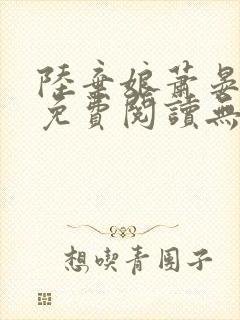 陸棄娘蕭晏
免費閱讀無
想喫青團子